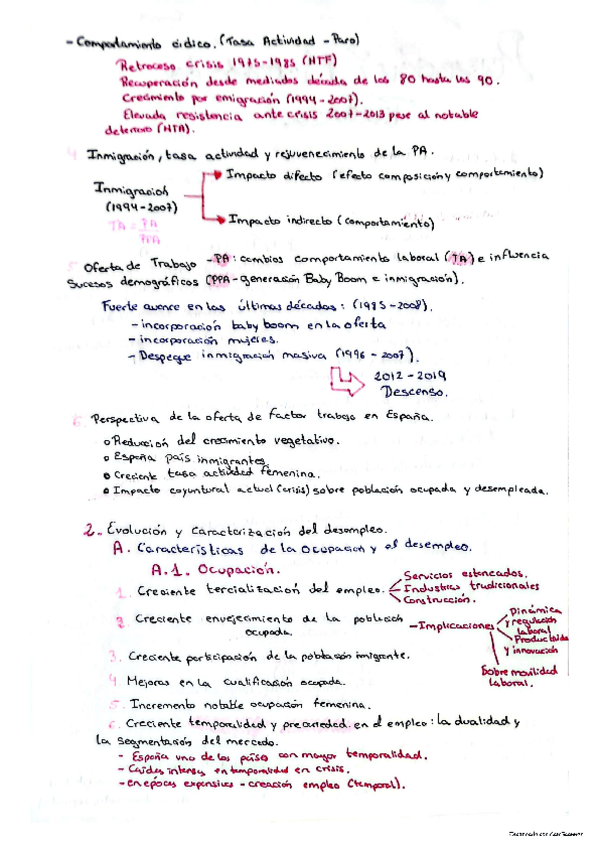 - Comportamiento cíclico. (Tasa Actividad - Paro)
Retroceso crisis 1975-1985 (HTF)
Recuperación desde mediados década de los 80 hasta los 90.
Crecimiento por emigración (1994-2007).
Elevada resistencia ante crisis 2007-2013 pese al notable
deterioro (HTA).
4. Inmigración, tasa actividad y rejuvenecimiento de la PA.
Impacto directo (efecto composición y comportamiento)
Inmigración
(1994-2007)
TA = PA
PPA
Impacto indirecto (comportamiento)
5. Oferta de Trabajo - PA: cambios comportamiento laboral (TA) e influencia
sucesos demográficos (PPA - generación Baby Boom e inmigración).
Fuerte avance en las últimas décadas: (1985-2008).
- incorporación baby boom en la oferta
- incorporación mujeres.
- Despegue inmigración masiva (1996-2007).
2012-2019
Descenso.
6. Perspectiva de la oferta de factor trabajo en España.
o Reducción del crecimiento vegetativo.
o España país inmigrantes.
o Creciente tasa actividad femenina.
o Impacto coyuntural actual (crisis) sobre población ocupada y desempleada.
2. Evolución y Caracterización del desempleo.
A. Características de la Ocupación y el desempleo.
A.1. Ocupación.
1. Creciente tercialización del empleo.
Servicios estancados.
Industrias tradicionales
Construcción.
2. Creciente envejecimiento de la población
ocupada.
- Implicaciones
Dinámica
y regulación
laboral
Productividad
y innovación
Sobre movilidad
laboral.
3. Creciente participación de la población inmigrante.
4. Mejoras en la cualificación ocupada.
5. Incremento notable ocupación femenina.
6. Creciente temporalidad y precariedad en el empleo: la dualidad y
la segmentación del mercado.
- España uno de los países con mayor temporalidad.
- Caídas intensas en temporalidad en crisis.
- en épocas expansivas - creación empleo (temporal).